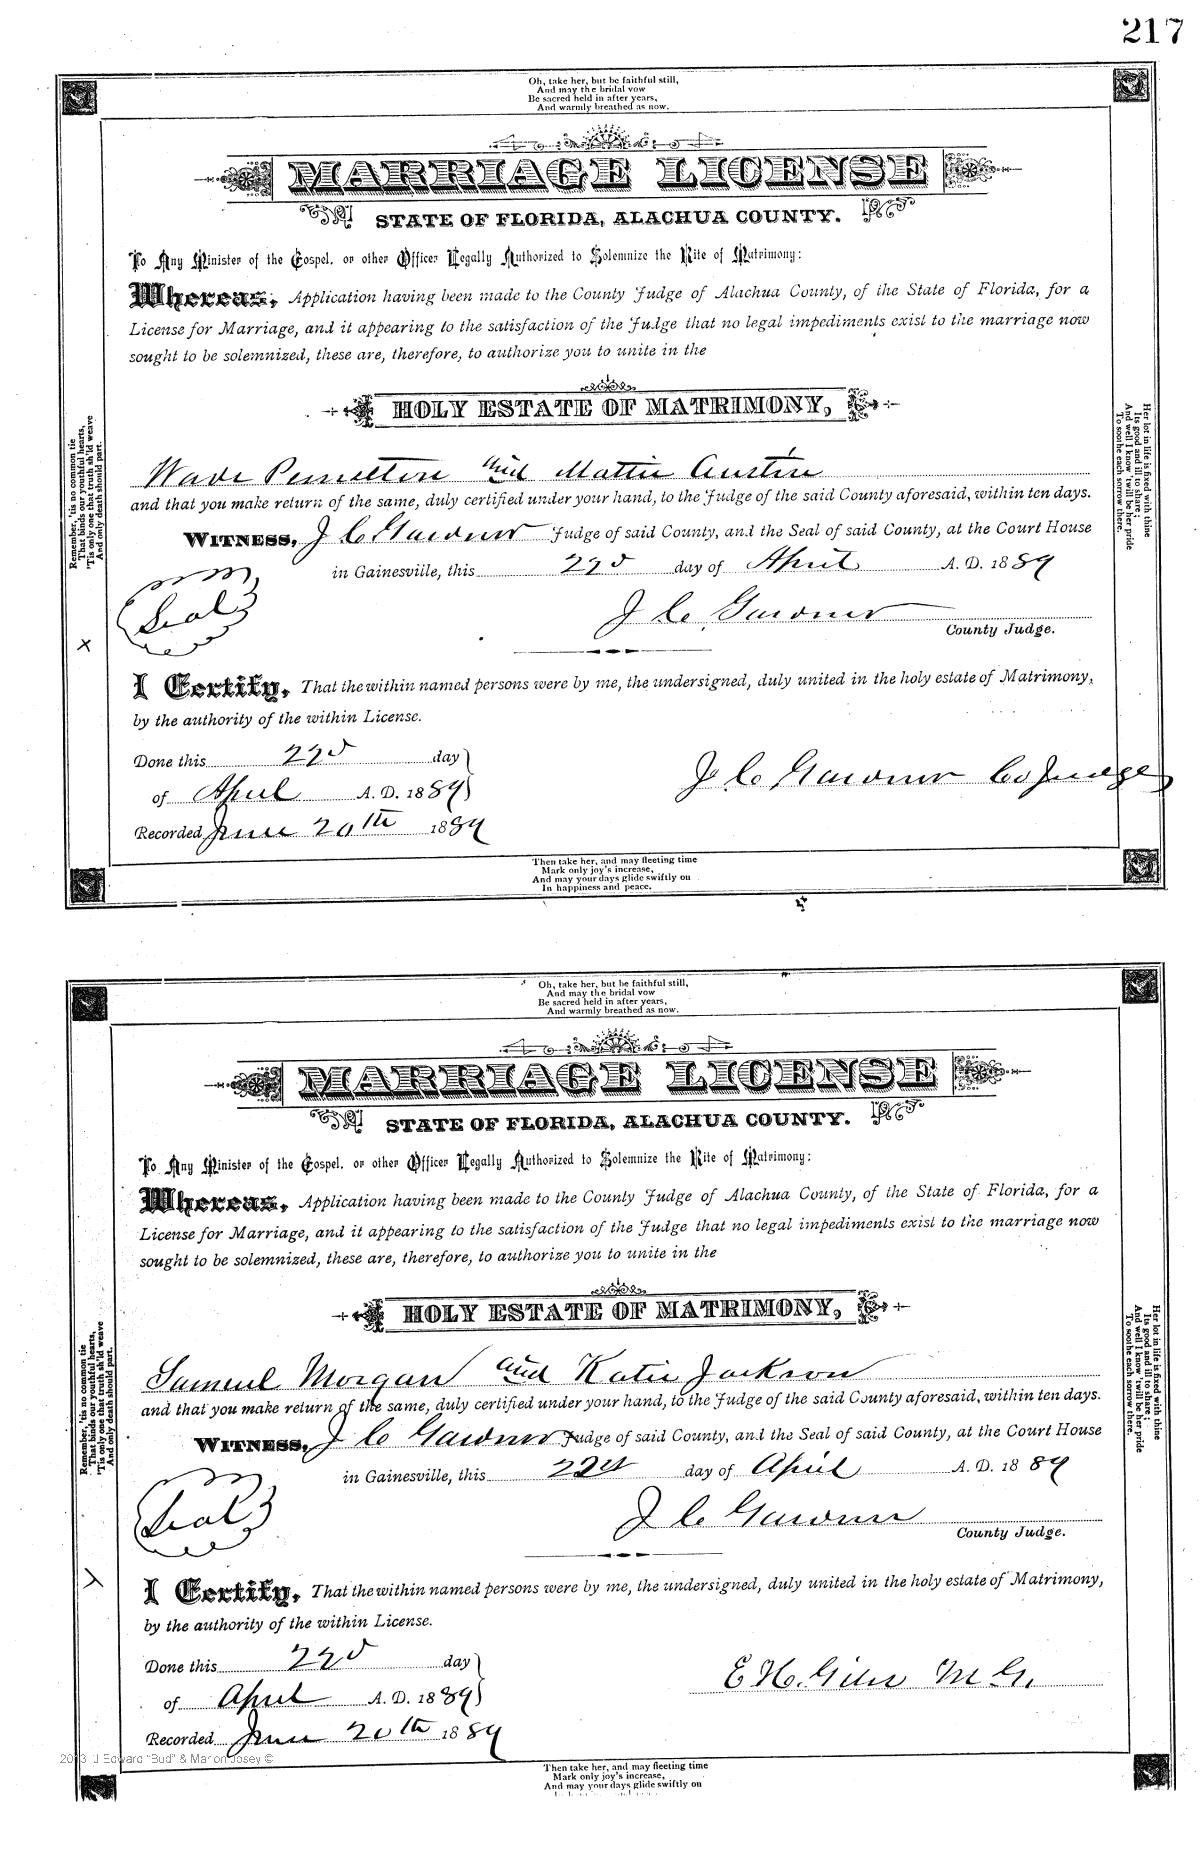 217
Oh, take her, but be faithful still,
And may the bridal vow
Be sacred held in after years,
And warmly breathed as now.
MARRIAGE LICENSE
STATE OF FLORIDA, ALACHUA COUNTY.
To Any Minister of the Gospel, or other Officer Legally Authorized to Solemnize the Rite of Matrimony:
Whereas, Application having been made to the County Judge of Alachua County, of the State of Florida, for a
License for Marriage, and it appearing to the satisfaction of the Judge that no legal impediments exist to the marriage now
sought to be solemnized, these are, therefore, to authorize you to unite in the
HOLY ESTATE OF MATRIMONY,
Wade and Mattie Austin
and that you make return of the same, duly certified under your hand, to the Judge of the said County aforesaid, within ten days.
WITNESS, J C Gardner Judge of said County, and the Seal of said County, at the Court House
in Gainesville, this 22d day of April A. D. 1889
Seal
J C Gardner
County Judge.
x
I Certify, That the within named persons were by me, the undersigned, duly united in the holy estate of Matrimony,
by the authority of the within License.
Done this 22d day
of April A. D. 1889
J C Gardner Co Judge
Recorded June 20th 1889
Remember, 'tis no common tie
That binds our youthful hearts,
'Tis only one that truth sh'ld weave
And only death should part.
Her lot in life is fixed with thine
Its good and ill to share;
And well I know 'twill be her pride
To soothe each sorrow there.
Then take her, and may fleeting time
Mark only joy's increase,
And may your days glide swiftly on
In happiness and peace.
Oh, take her, but be faithful still,
And may the bridal vow
Be sacred held in after years,
And warmly breathed as now.
MARRIAGE LICENSE
STATE OF FLORIDA, ALACHUA COUNTY.
To Any Minister of the Gospel, or other Officer Legally Authorized to Solemnize the Rite of Matrimony:
Whereas, Application having been made to the County Judge of Alachua County, of the State of Florida, for a
License for Marriage, and it appearing to the satisfaction of the Judge that no legal impediments exist to the marriage now
sought to be solemnized, these are, therefore, to authorize you to unite in the
HOLY ESTATE OF MATRIMONY,
Samuel Morgan and Katie Jackson
and that you make return of the same, duly certified under your hand, to the Judge of the said County aforesaid, within ten days.
WITNESS, J C Gardner Judge of said County, and the Seal of said County, at the Court House
in Gainesville, this day of April A. D. 1889
Seal
J C Gardner
County Judge.
I Certify, That the within named persons were by me, the undersigned, duly united in the holy estate of Matrimony,
by the authority of the within License.
Done this 22d day
of April A. D. 1889
E H. Giles M. G.
Recorded June 20th 1889
Remember, 'tis no common tie
That binds our youthful hearts,
'Tis only one that truth sh'ld weave
And only death should part.
Her lot in life is fixed with thine
Its good and ill to share;
And well I know 'twill be her pride
To soothe each sorrow there.
2013 J Edward "Bud" & Marion Josey ©
Then take her, and may fleeting time
Mark only joy's increase,
And may your days glide swiftly on